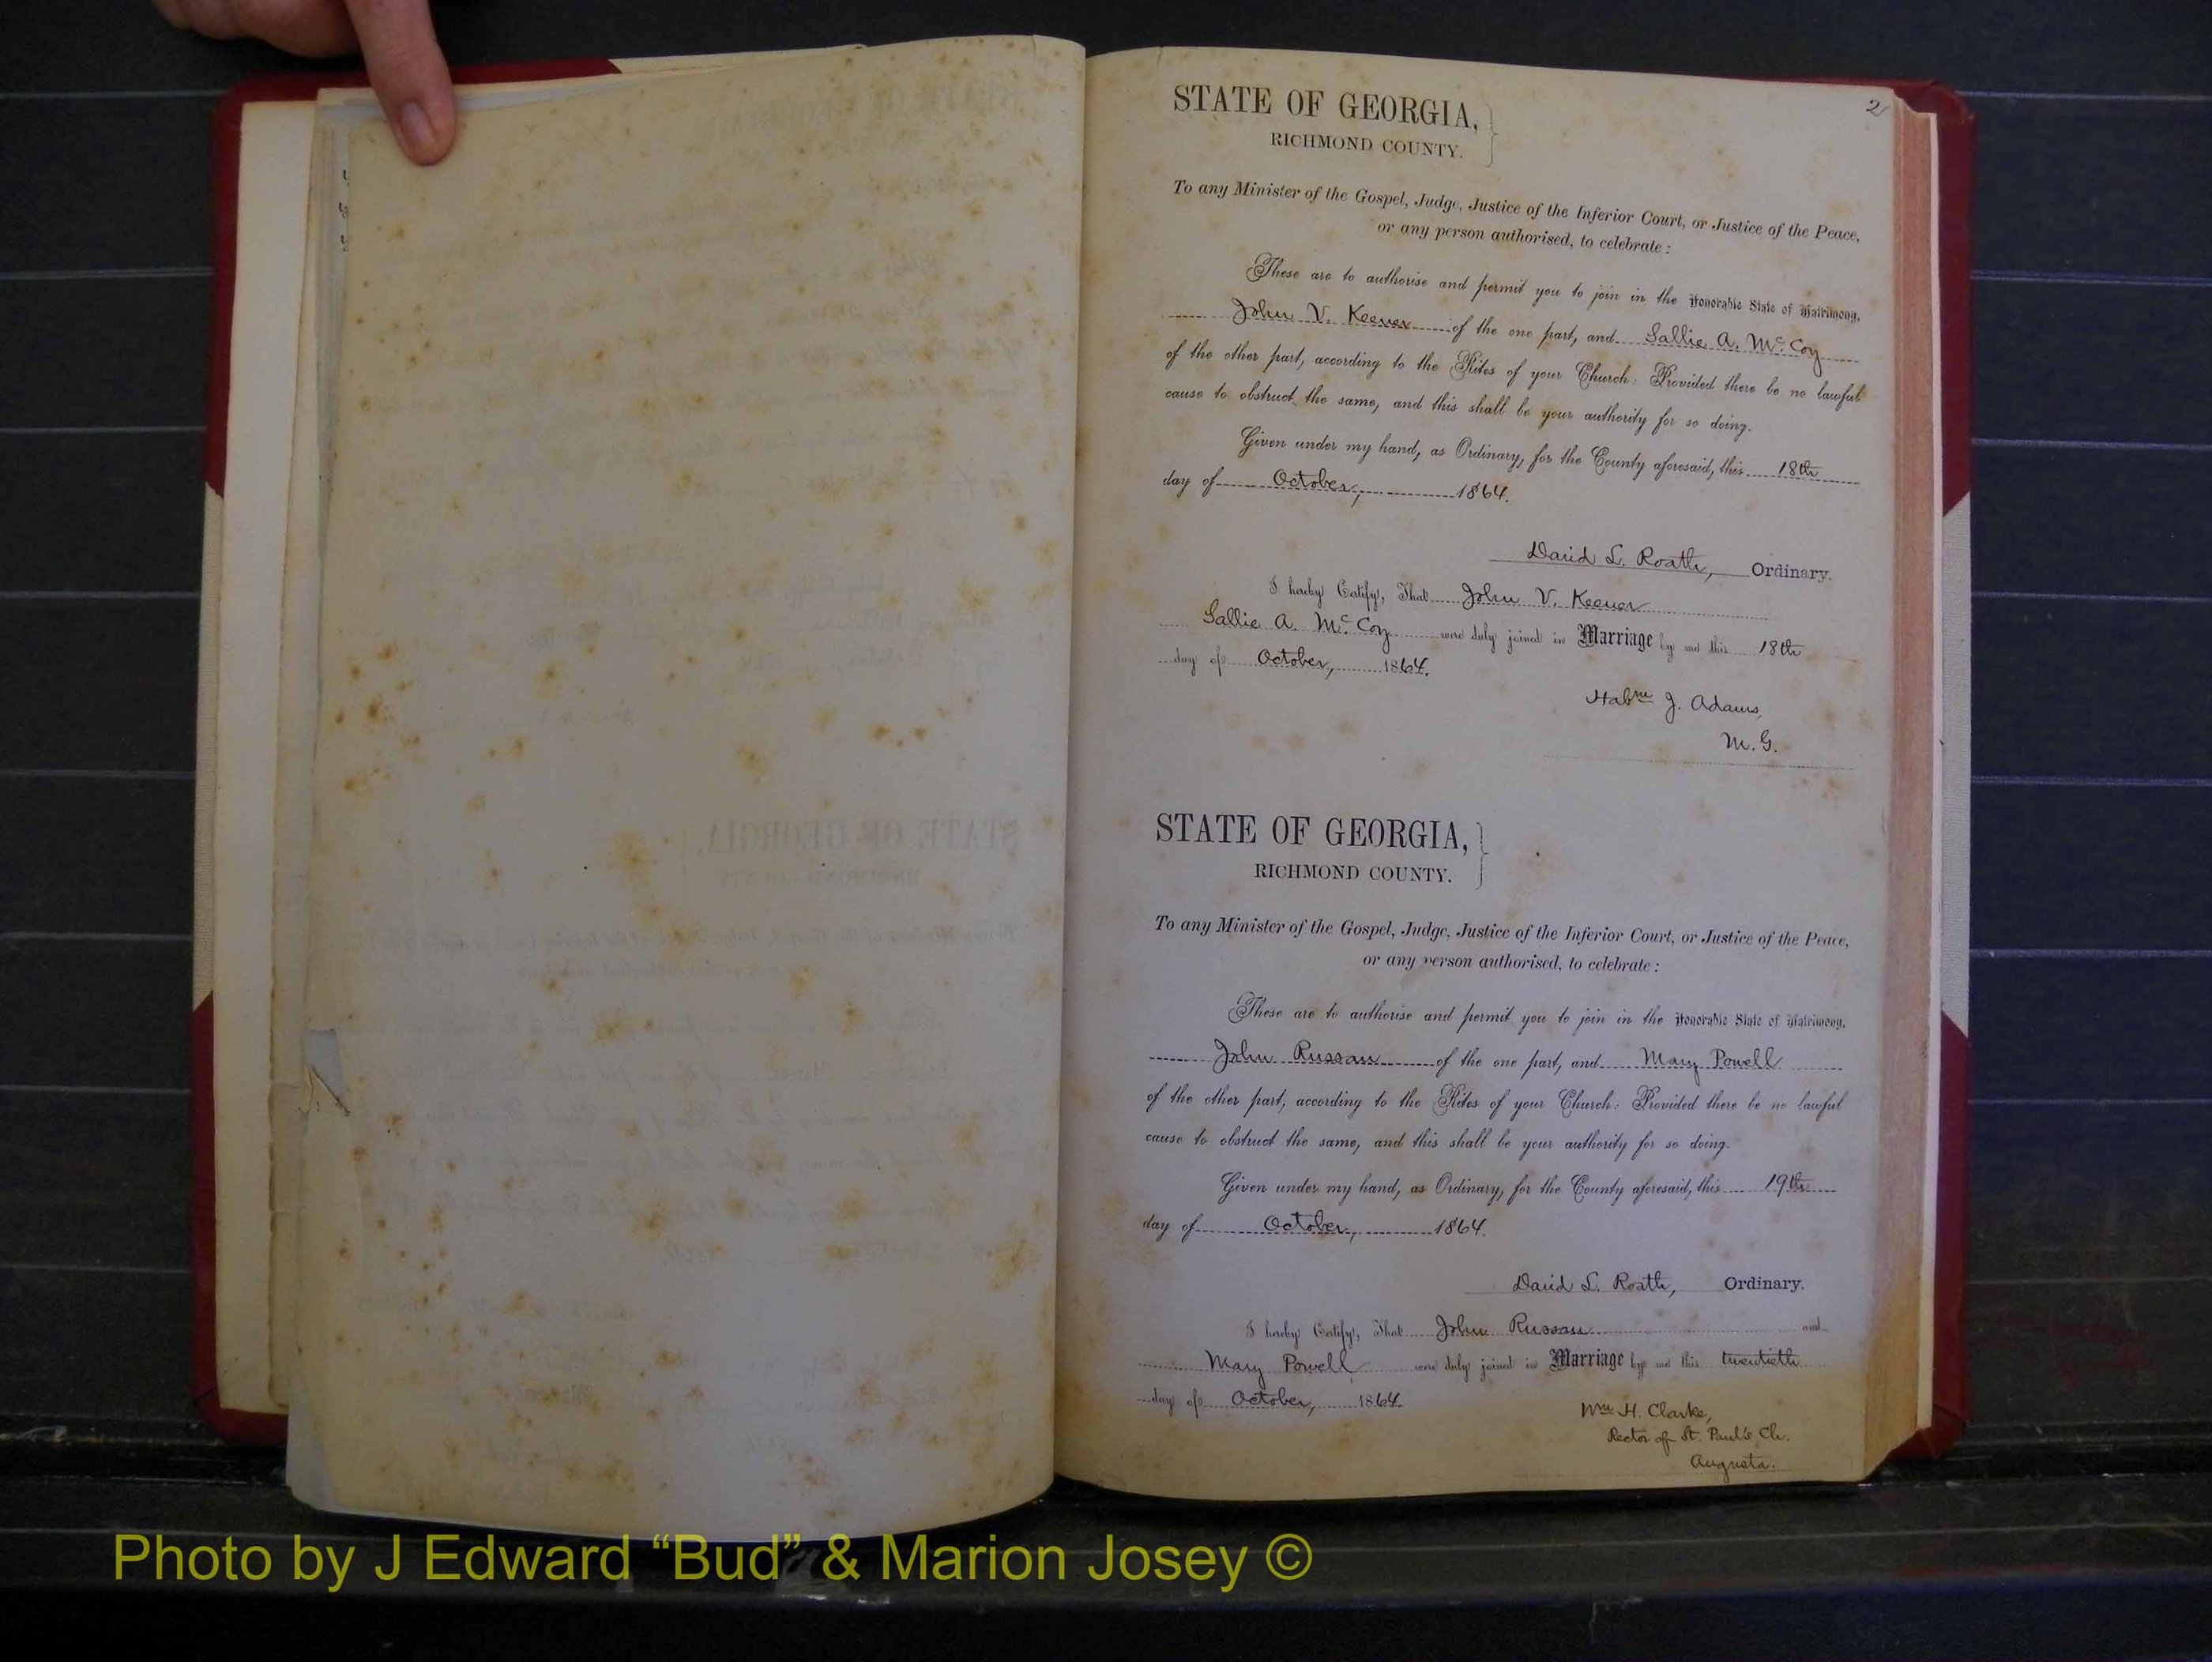 2
STATE OF GEORGIA,
RICHMOND COUNTY.
To any Minister of the Gospel, Judge, Justice of the Inferior Court, or Justice of the Peace,
or any person authorised, to celebrate:
These are to authorise and permit you to join in the Honorable State of Matrimony,
John V. Keener of the one part, and Sallie A. McCoy
of the other part, according to the Rites of your Church: Provided there be no lawful
cause to obstruct the same, and this shall be your authority for so doing.
Given under my hand, as Ordinary, for the County aforesaid, this 18th
day of October, 1864.
David L. Roath, Ordinary.
I hereby Certify, That John V. Keener
Sallie A. McCoy were duly joined in Marriage by me this 18th
day of October, 1864.
J. Adams,
M.G.
STATE OF GEORGIA,
RICHMOND COUNTY.
To any Minister of the Gospel, Judge, Justice of the Inferior Court, or Justice of the Peace,
or any person authorised, to celebrate:
These are to authorise and permit you to join in the Honorable State of Matrimony,
John Russau of the one part, and Mary Powell
of the other part, according to the Rites of your Church: Provided there be no lawful
cause to obstruct the same, and this shall be your authority for so doing.
Given under my hand, as Ordinary, for the County aforesaid, this 19th
day of October, 1864.
David L. Roath, Ordinary.
I hereby Certify, That John Russau and
Mary Powell were duly joined in Marriage by me this twentieth
day of October, 1864.
Wm H. Clarke,
Rector of St. Paul's Ch.
Augusta.
Photo by J Edward “Bud” & Marion Josey ©